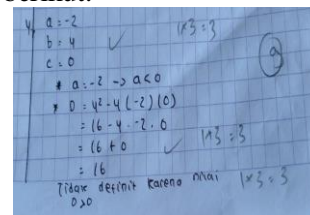 berikut.
4) a = -2
b = 4 1×3 = 3
c = 0 9
• a = -2 -> a<0
• D = 4² - 4(-2)(0)
= 16 - 4. -2. 0
= 16 + 0 1×3 = 3
= 16
Tidak definit karena nilai 1×3 = 3
D>0